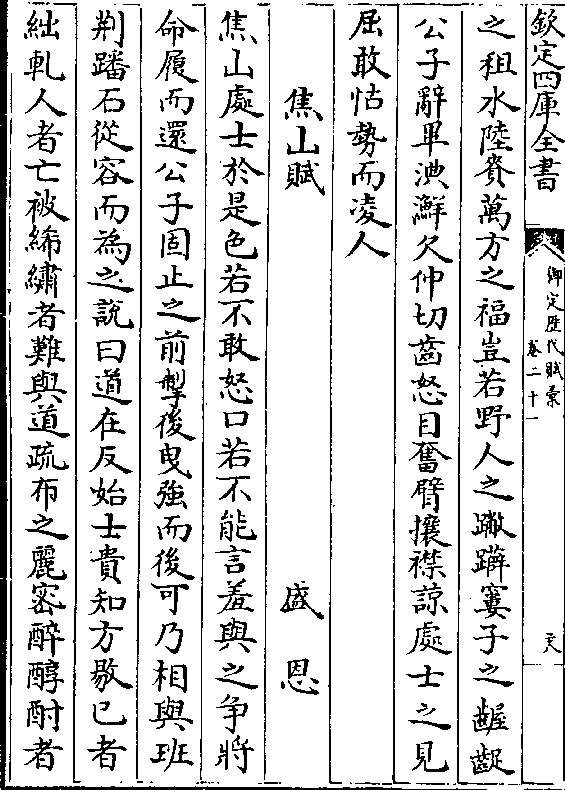 欽定四庫全書
御定歷代賦彙
卷二十一
六
之租水陸賚萬方之福豈若野人之蹴躃窶子之齷齪
公子辭畢㳿鮮欠伸切齒怒目奮臂攘襟諒處士之見
屈敢怙勢而凌人
焦山賦 盛恩
焦山處士於是色若不敢怒口若不能言羞與之爭將
命履而還公子固止之前掣後曳強而後可乃相與班
荆蹯石從容而為之說曰道在反始士貴知方敭已者
絀軋人者亡被絺繡者難與道疏布之麗密醉醇酎者